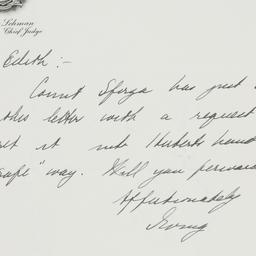 Lehman
Chief Judge
Edith:-
Count Sforza has just
this letter with a request
it into Huberts hand
safe" way. Will you
Affectionately
Irving